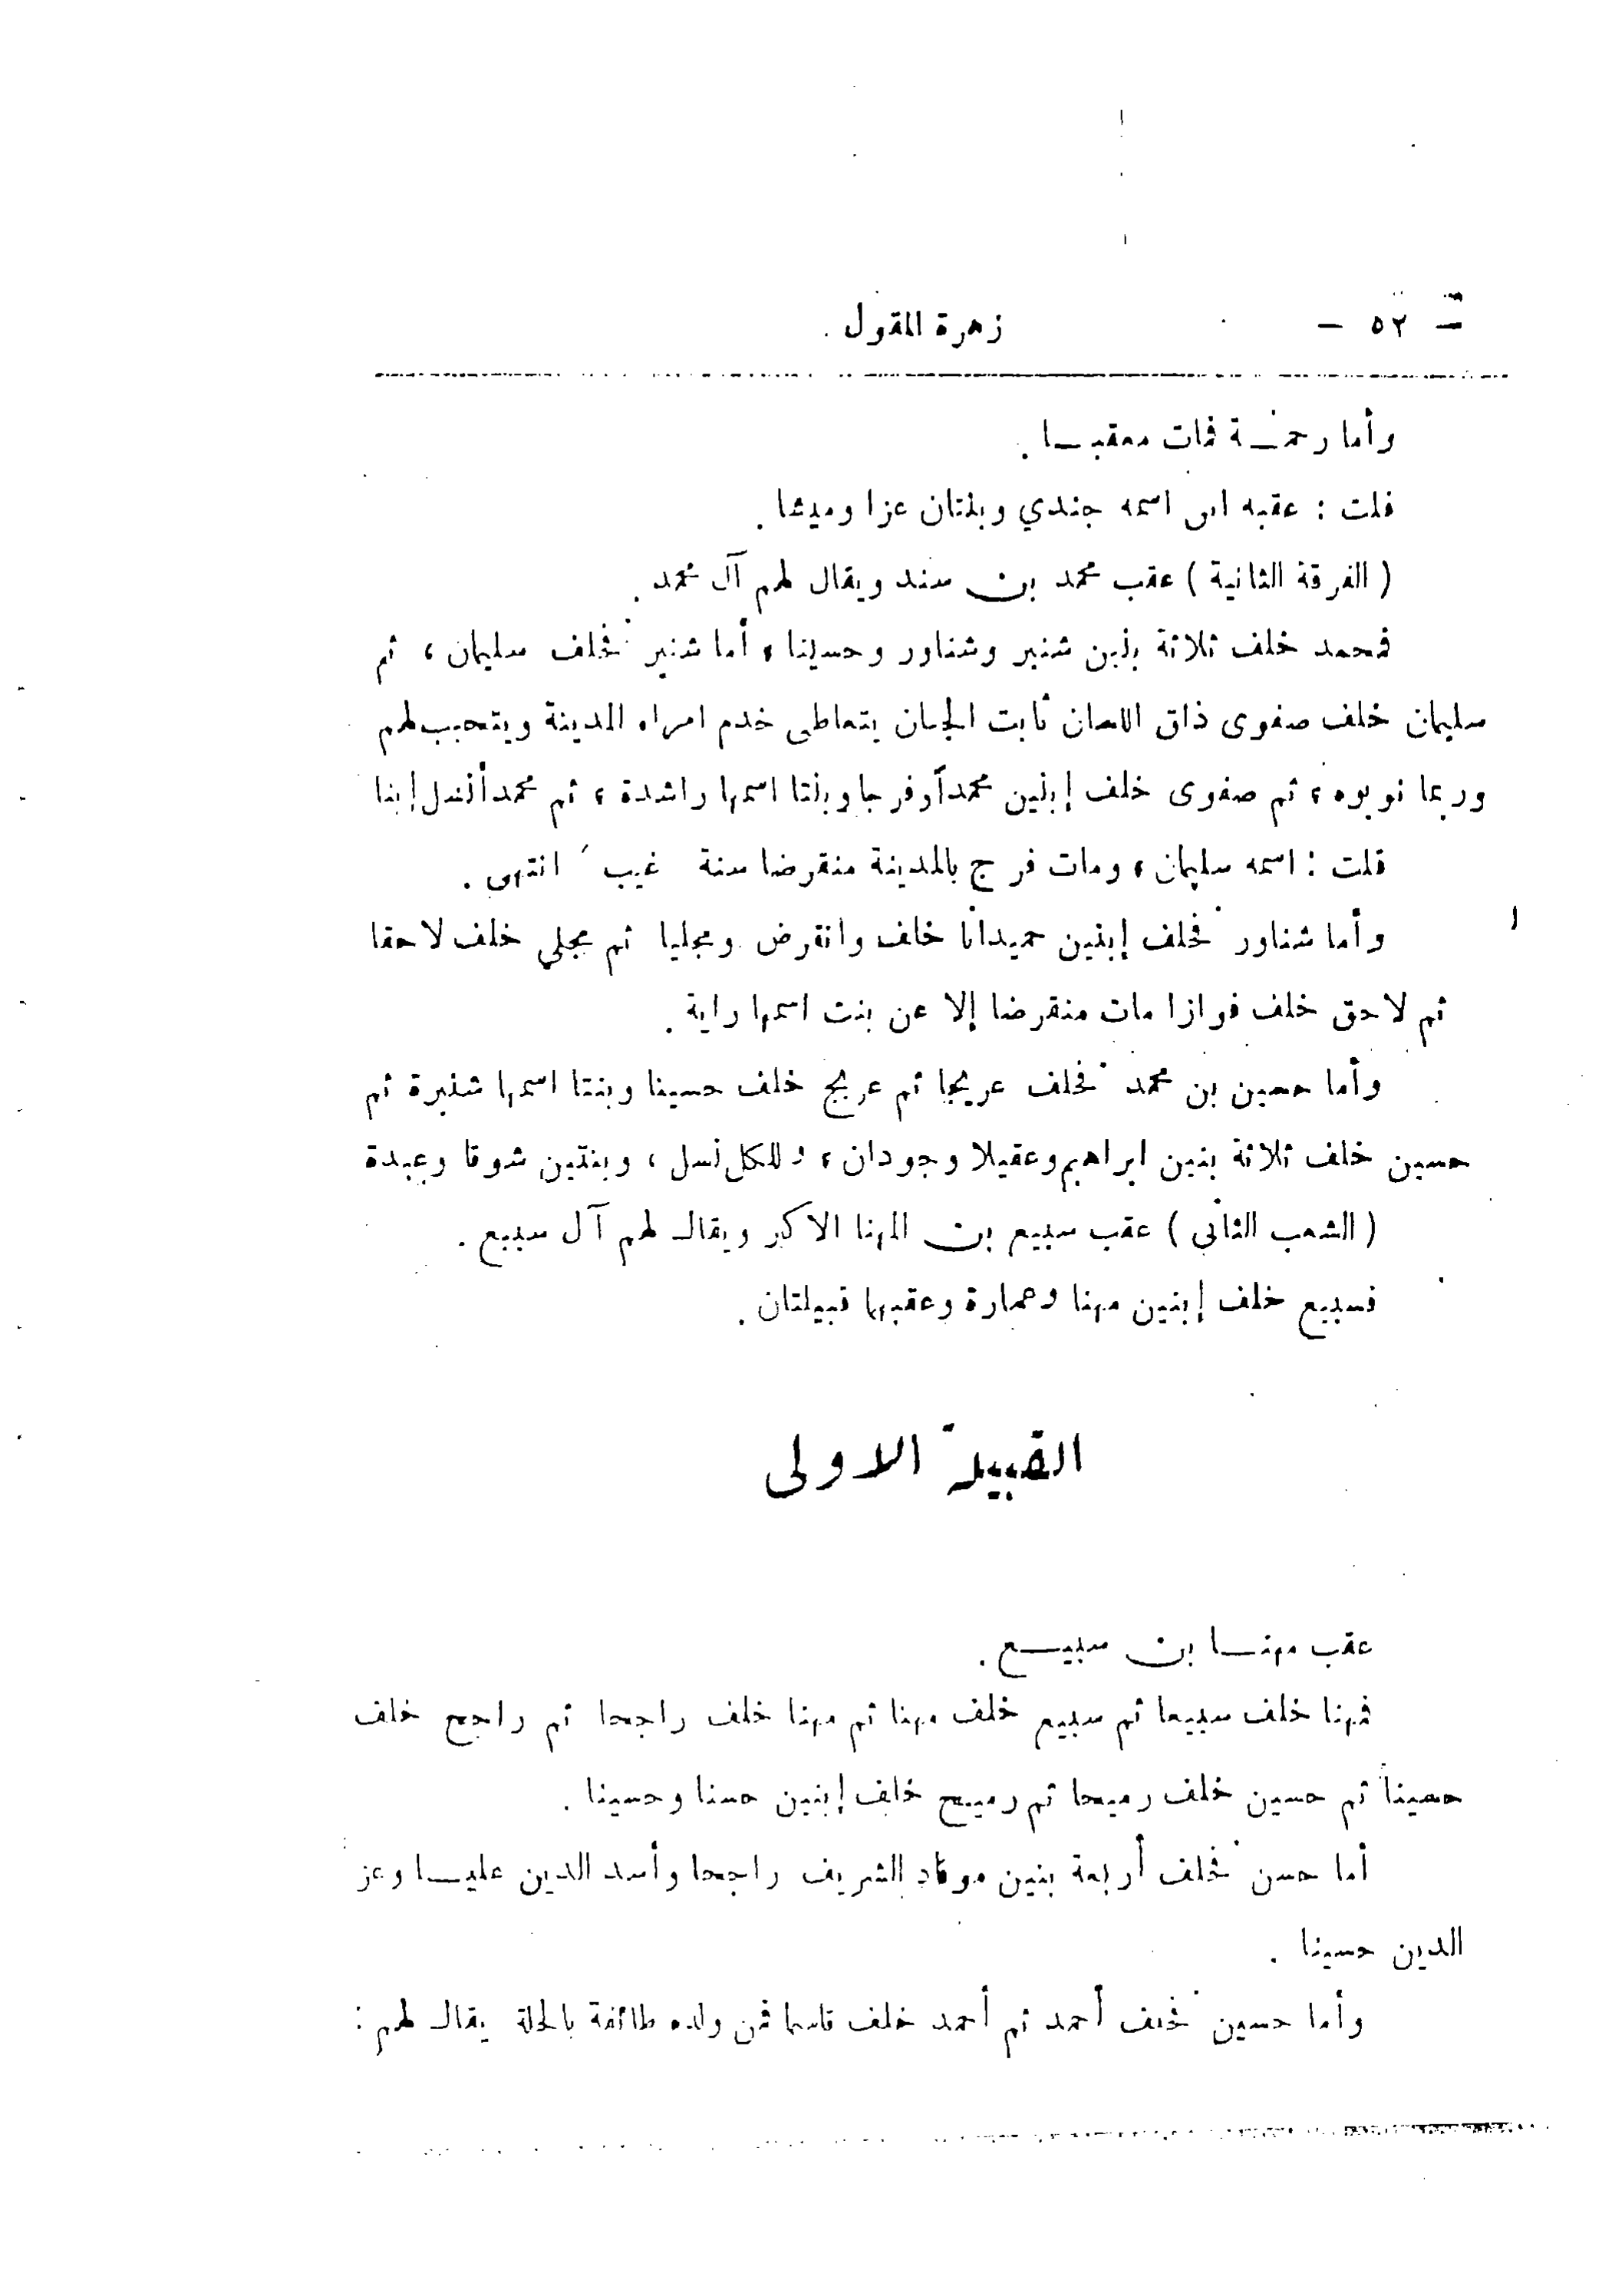 — ٥٢ — زهرة المقول
وأما رحمــة فمات معقبــا .
قلت : عقبه ابن اسمه جندي وبنتان عزا وميثا .
( الفرقة الثانية ) عقب محمد بن سند ويقال لهم آل محمد .
فمحمد خلف ثلاثة بنين شنبر وشناور وحسينا ، أما شنبر فخلف سليمان ، ثم
سليمان خلف صفوى ذاق اللسان ثابت الجنان يتعاطى خدم امراء المدينة ويتحبب لهم
وربما نوبوه ، ثم صفوى خلف إبنين محمدأوفرجا وبنتا اسمها راشدة ، ثم محمدأنسل إبنا
قلت : اسمه سليمان ، ومات فرج بالمدينة منقرضا سنة غيب انتهى .
وأما شناور فخلف إبنين حميدانا خلف وانقرض ومجليا ثم مجلي خلف لاحقا
ثم لاحق خلف فوازا مات منقرضا إلا عن بنت اسمها راية .
وأما حسين بن محمد فخلف عريجا ثم عريج خلف حسينا وبنتا اسمها شنبرة ثم
حسين خلف ثلاثة بنين ابراهيم وعقيلا وجودان ، وللكل نسل ، وبنتين شوقا وعبدة
( الشعب الثاني ) عقب سبيع بن المهنا الاكبر ويقال لهم آل سبيع .
فسبيع خلف إبنين مهنا وعمارة وعقبهما قبيلتان .
القبيلة الاولى
عقب مهنــا بن سبيــع .
فمهنا خلف سبيعا ثم سبيع خلف مهنا ثم مهنا خلف راجحا ثم راجح خلف
حسينا ثم حسين خلف رميحا ثم رميح خلف إبنين حسنا وحسينا .
أما حسن فخلف أربعة بنين الشريف راجحا وأسد الدين عليــا وعز
الدين حسينا .
وأما حسين فخلف أحمد ثم أحمد خلف قاسما فمن ولده طائفة بالحلة يقال لهم :